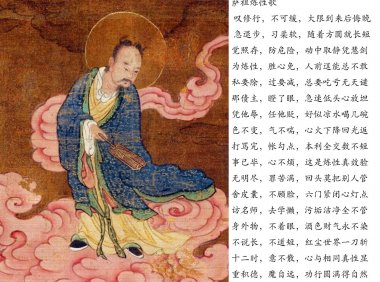 萨祖炼性歌
叹修行，不可缓，大限到来后悔晚
急退步，习柔软，随着方圆就长短
觉照存，防危险，动中取静凭慧剑
为炼性，胜心免，人前逞能总不敢
私要除，过要减，总要吃亏无天谴
那债主，瞪了眼，急速低头心放坦
凭他辱，任他贬，好似凉水喝几碗
色不变，气不喘，心火下降回光返
打骂完，帐勾点，本利全交数不短
事已毕，心不烦，这是炼性真效验
无明尽，罪苦满，回头莫把别人管
舍皮囊，不顾脸，六门紧闭心灯点
访名师，去学懒，污垢洁净全不管
身外物，不着眼，酒色财气永不染
不说长，不道短，红尘世界一刀斩
十二时，意不散，心与相同真性显
重积德，魔自远，功行圆满得自然